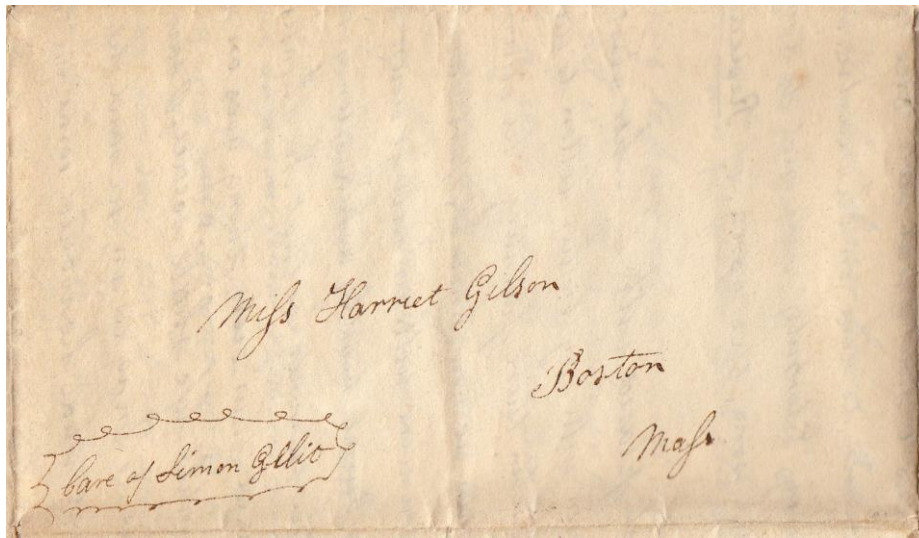 Miſs Harriet Gilson
Boston
Maſs
Care of Simon